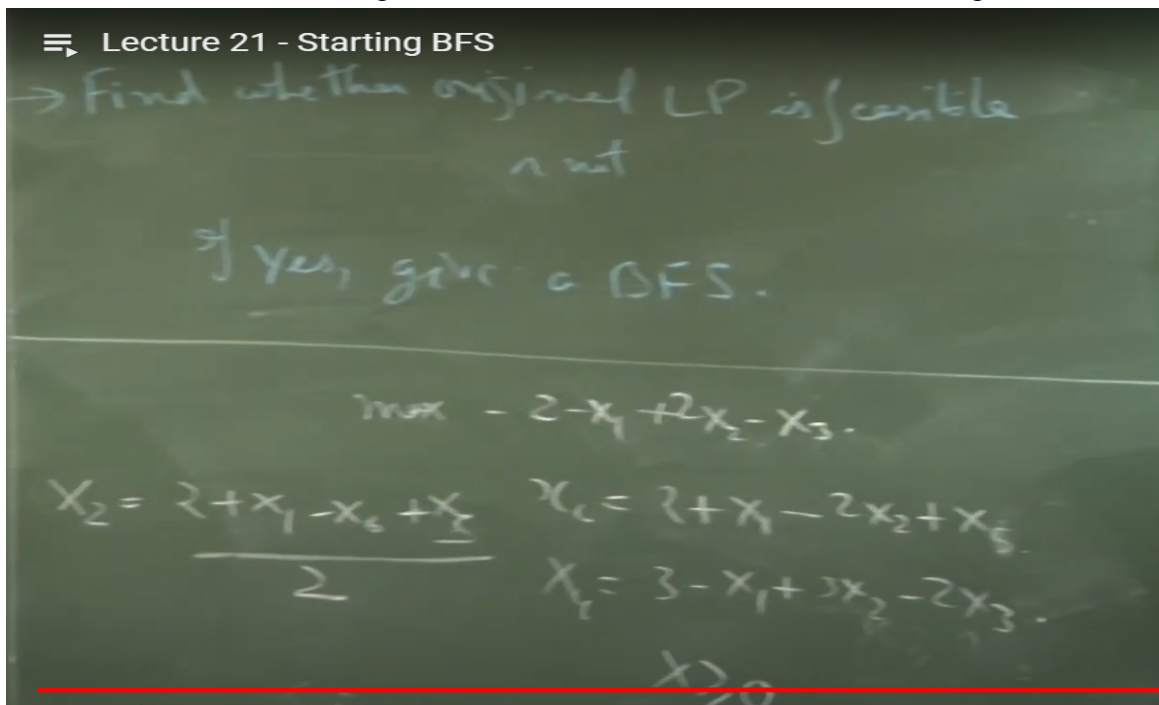 Lecture 21 - Starting BFS
→ Find whether original LP is feasible
or not
If Yes, give a BFS.
max - 2 - x₁ + 2x₂ - x₃.
x₂ = 2 + x₁ - x₆ + x₅ / 2
x₆ = 2 + x₁ - 2x₂ + x₅.
= 3 - x₁ + 3x₂ - 2x₃.
x ≥ 0